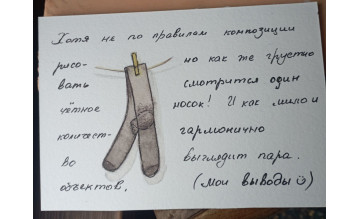 Хотя не по правилам композиции
рисо- но как же грустно
вать смотрится один
чётное носок! И как мило и
количест- гармонично
во выглядит пара.
объектов. (Мои выводы☺)